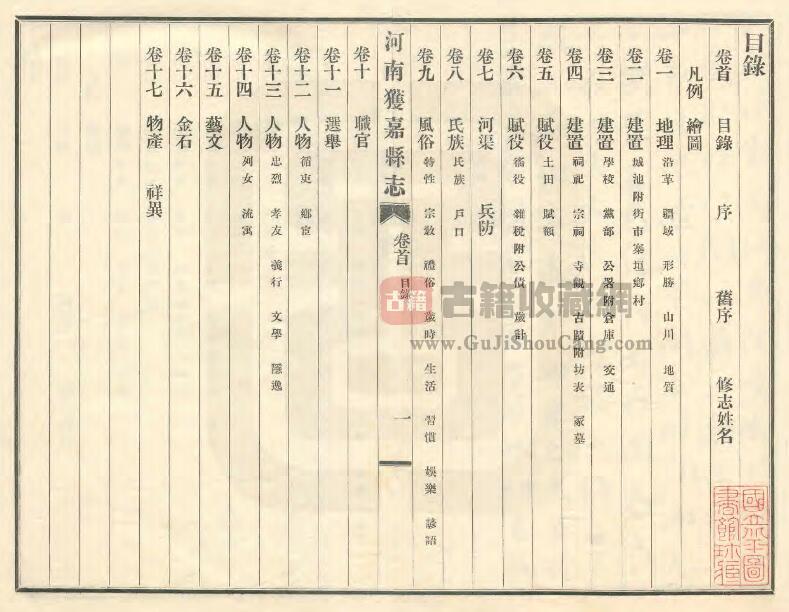 目錄
卷首 目錄 序 舊序 修志姓名
凡例 繪圖
卷一 地理 沿革 疆域 形勝 山川 地質
卷二 建置 城池附街市寨垣鄉村
卷三 建置 學校 黨部 公署附倉庫 交通
卷四 建置 祠祀 宗祠 寺觀 古蹟附坊表 冢墓
卷五 賦役 土田 賦額
卷六 賦役 徭役 雜稅附公債 歲計
卷七 河渠 兵防
卷八 氏族 氏族 戶口
卷九 風俗 特性 宗教 禮俗 歲時 生活 習慣 娛樂 諺語
河南獲嘉縣志 卷首 目錄 一
卷十 職官
卷十一 選舉
卷十二 人物 循吏 鄉宦
卷十三 人物 忠烈 孝友 義行 文學 隱逸
卷十四 人物 列女 流寓
卷十五 藝文
卷十六 金石
卷十七 物產 祥異
古籍 古籍收藏網
www.GuJiShouCang.com
國立北平圖
書館珍藏